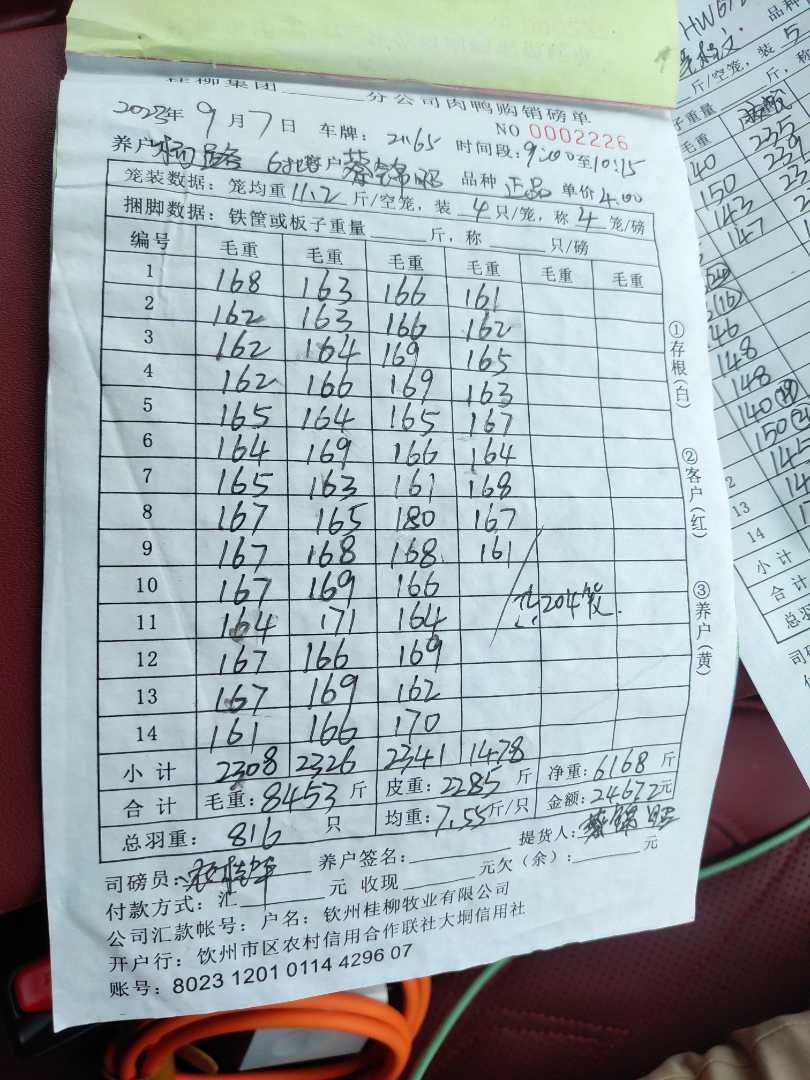 桂柳集团______分公司肉鸭购销磅单
2023年9月7日 车牌: 2165 NO 0002226
养户 杨 客户 蔡锦昭 时间段: 9:00至10:15
笼装数据: 笼均重11.2斤/空笼, 装4只/笼, 称4笼/磅 品种 正品 单价4.00
捆脚数据: 铁筐或板子重量______斤, 称______只/磅
编号 毛重 毛重 毛重 毛重 毛重 毛重
1 168 163 166 161
2 162 163 166 162
3 162 164 169 165
4 162 166 169 163
5 165 164 165 167
6 164 169 166 164
7 165 163 161 168
8 167 165 180 167
9 167 168 168 161
10 167 169 166
11 164 171 164 共204笼.
12 167 166 169
13 167 169 162
14 161 166 170
小计 2308 2326 2341 1478
合计 毛重: 8453斤 皮重: 2285斤 净重: 6168斤
总羽重: 816只 均重: 7.55斤/只 金额: 24672元
司磅员: 养户签名: 提货人: 蔡锦昭
付款方式: 汇______元 收现______元欠(余): ______元
公司汇款帐号: 户名: 钦州桂柳牧业有限公司
开户行: 钦州市区农村信用合作联社大垌信用社
账号: 8023 1201 0114 4296 07
①存根(白)
②客户(红)
③养户(黄)
品种
斤/空笼, 装5
子重量 斤, 称
毛重
40 235
150 239
143
147
46
148
148
140
150
145
13
14
小计
合计
总羽
司磅